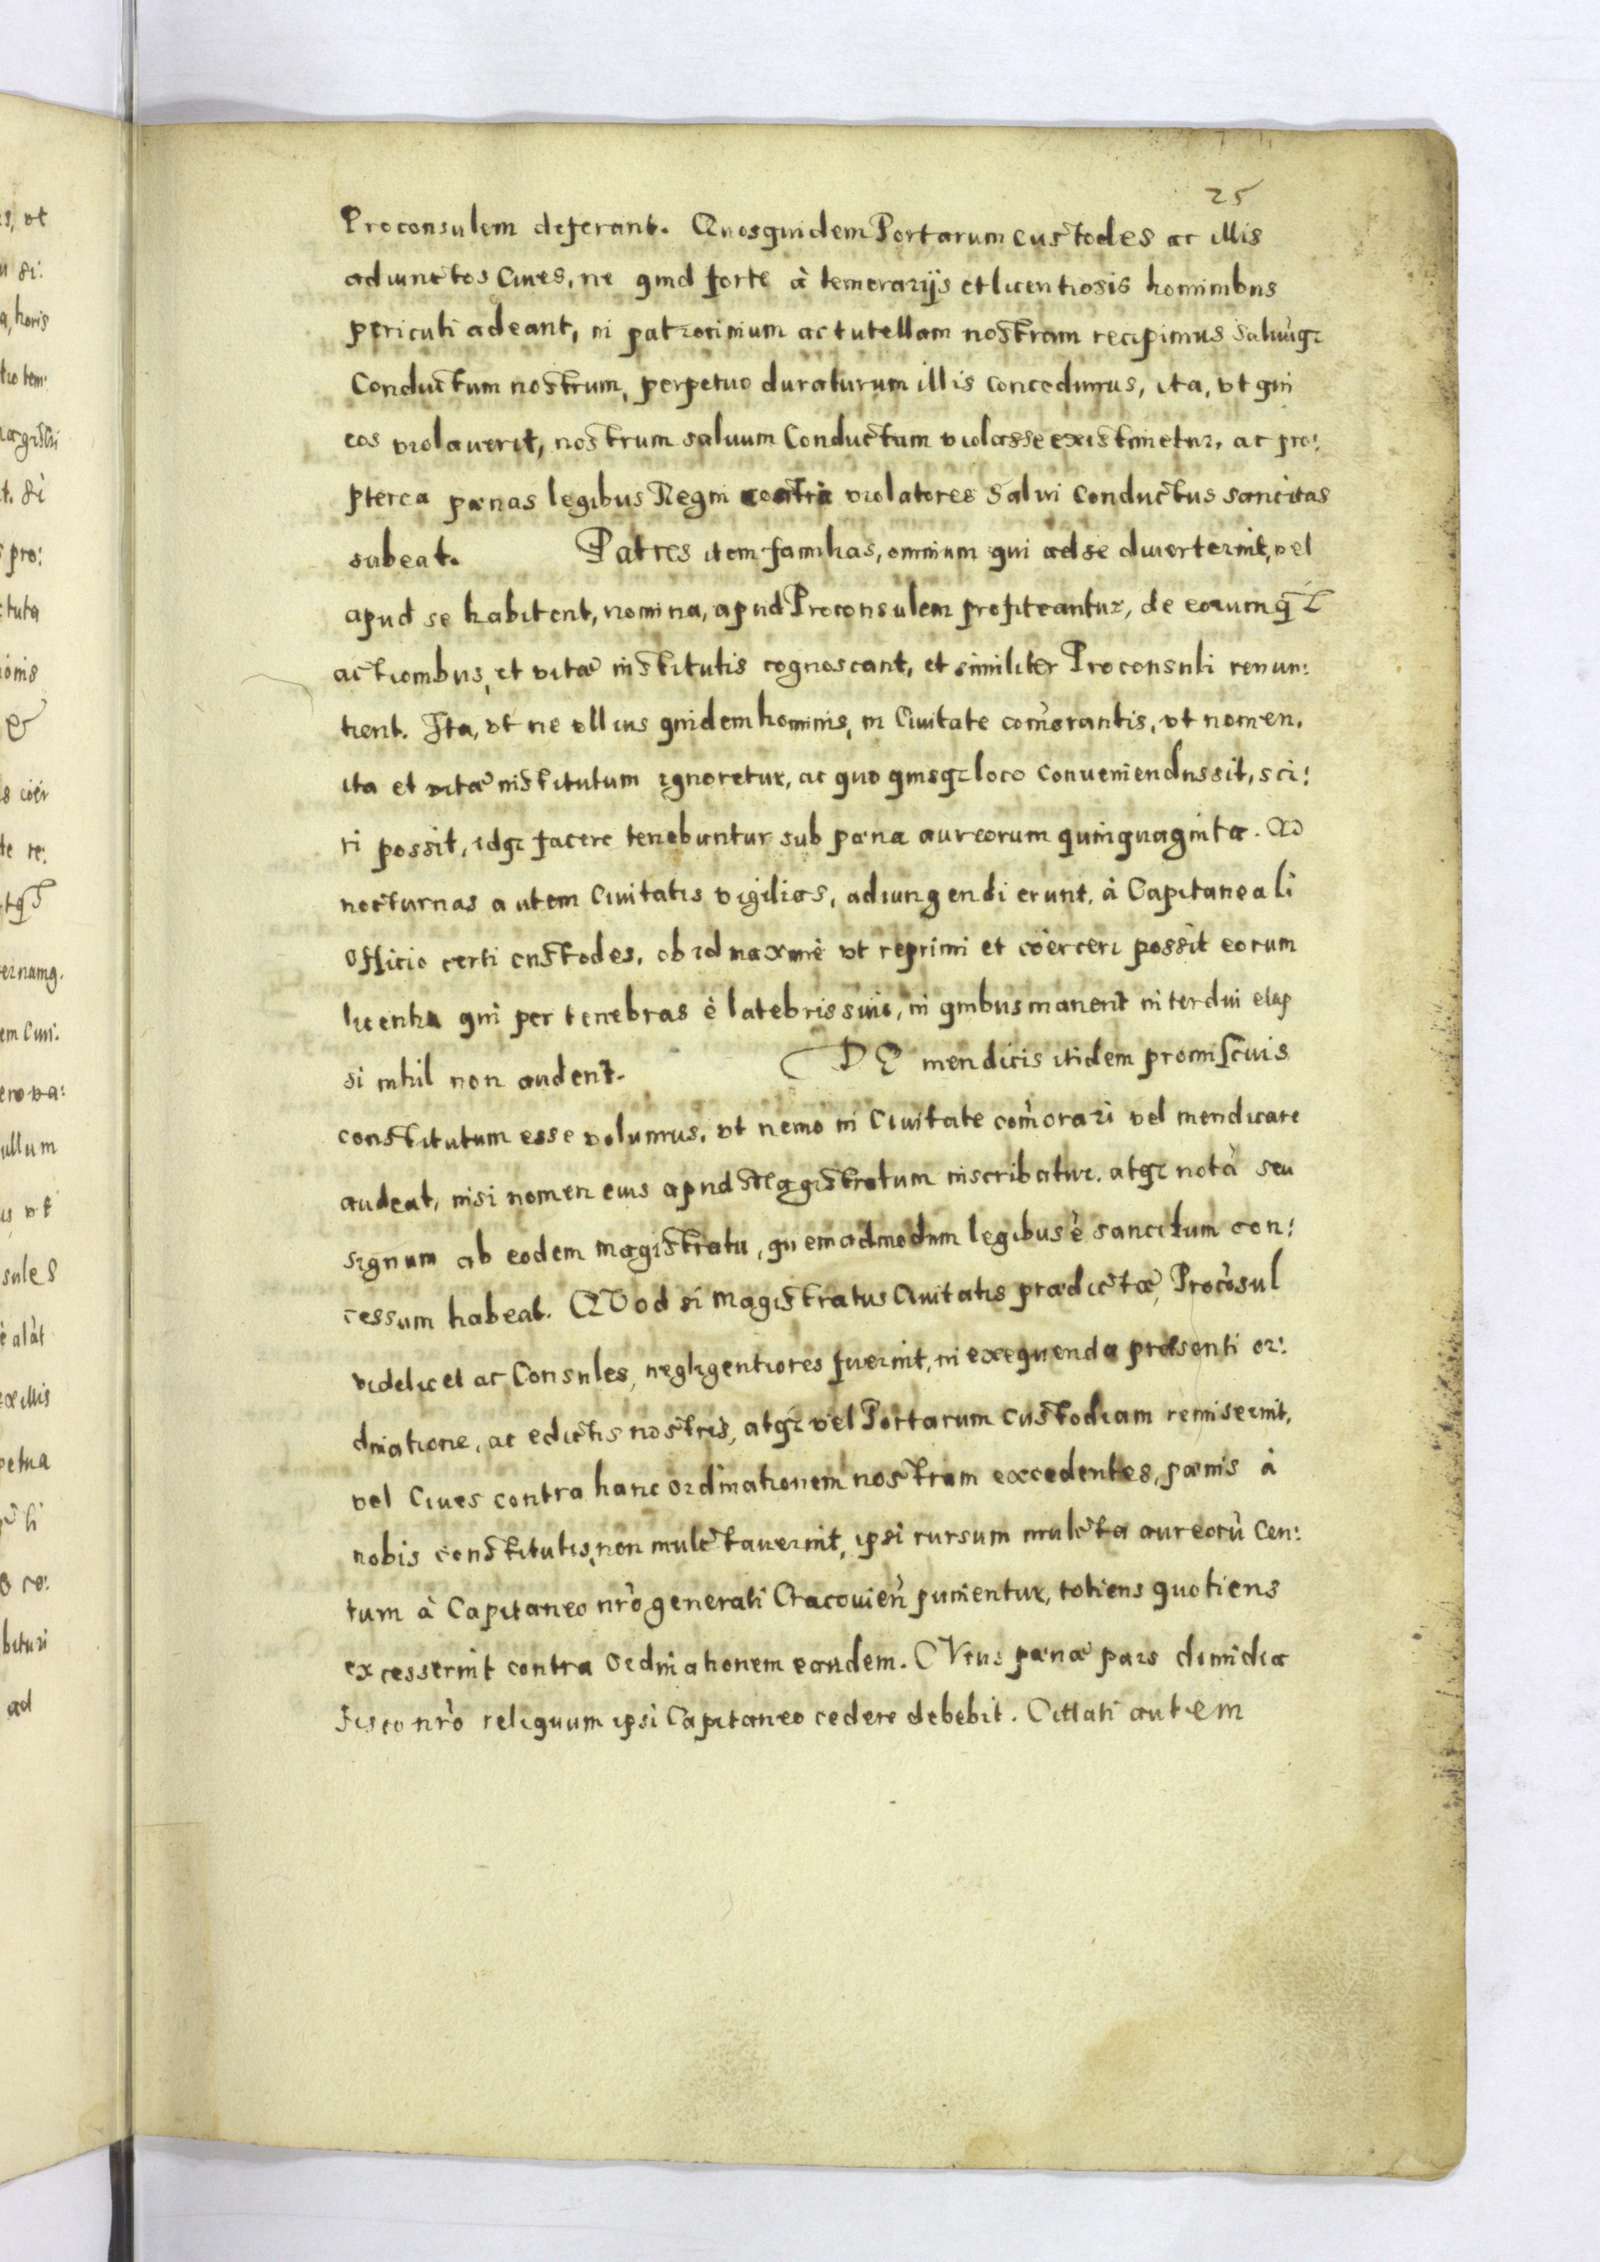 25
Proconsulem deferant. Quosquidem Portarum custodes ac illis
adiunctos Ciues, ne quid forte à temerarijs et licentiosis hominibus
periculi adeant, in patrocinium ac tutellam nostram recipimus Saluũq;
Conductum nostrum, perpetuo duraturum illis concedimus, ita, vt qui
eos violauerit, nostrum saluum Conductum violasse existimetur, ac pro:
pterea pœnas legibus Regni contra violatores Salui Conductus sancitas
subeat. Patres item familias, omnium qui ad se diuerterint, vel
apud se habitent, nomina, apud Proconsulem profiteantur, de eorumq;
actionibus, et vitæ institutis cognoscant, et similiter Proconsuli renun:
tient. Ita, vt ne vllius quidem hominis, in Ciuitate com̃orantis, vt nomen,
ita et vitæ institutum ignoretur, ac quo quisq; loco conueniendus sit, sci:
ri possit, idq; facere tenebuntur sub pœna aureorum quinquaginta. AD
nocturnas autem Ciuitatis vigilias, adiungendi erunt, à Capitaneali
Officio certi custodes, ob id maxime vt reprimi et coërceri possit eorum
licentia qui per tenebras è latebris suis, in quibus manent interdiu elap
si nihil non audent. DE mendicis itidem promiscuis
constitutum esse volumus, vt nemo in Ciuitate com̃orari vel mendicare
audeat, nisi nomen eius apud Magistratum inscribatur, atq; notà seu
signum ab eodem magistratu, quemadmodum legibus è sancitum con:
cessum habeat. QVod si Magistratus Ciuitatis prædictæ, Procõsul
videlicet ac Consules, negligentiores fuerint, in exequenda præsenti or:
dinatione, ac edictis nostris, atq; vel Portarum Custodiam remiserint,
vel Ciues contra hanc ordinationem nostram excedentes, pœnis à
nobis constitutis, non mulctauerint, ipsi rursum mulcta aureorũ Cen:
tum à Capitaneo nr̃o generali Cracouien̄ punientur, totiens quotiens
excesserint contra Ordinationem eandem. CVius pœnæ pars dimidia
fisco nr̃o reliquum ipsi Capitaneo cedere debebit. Cittati autem